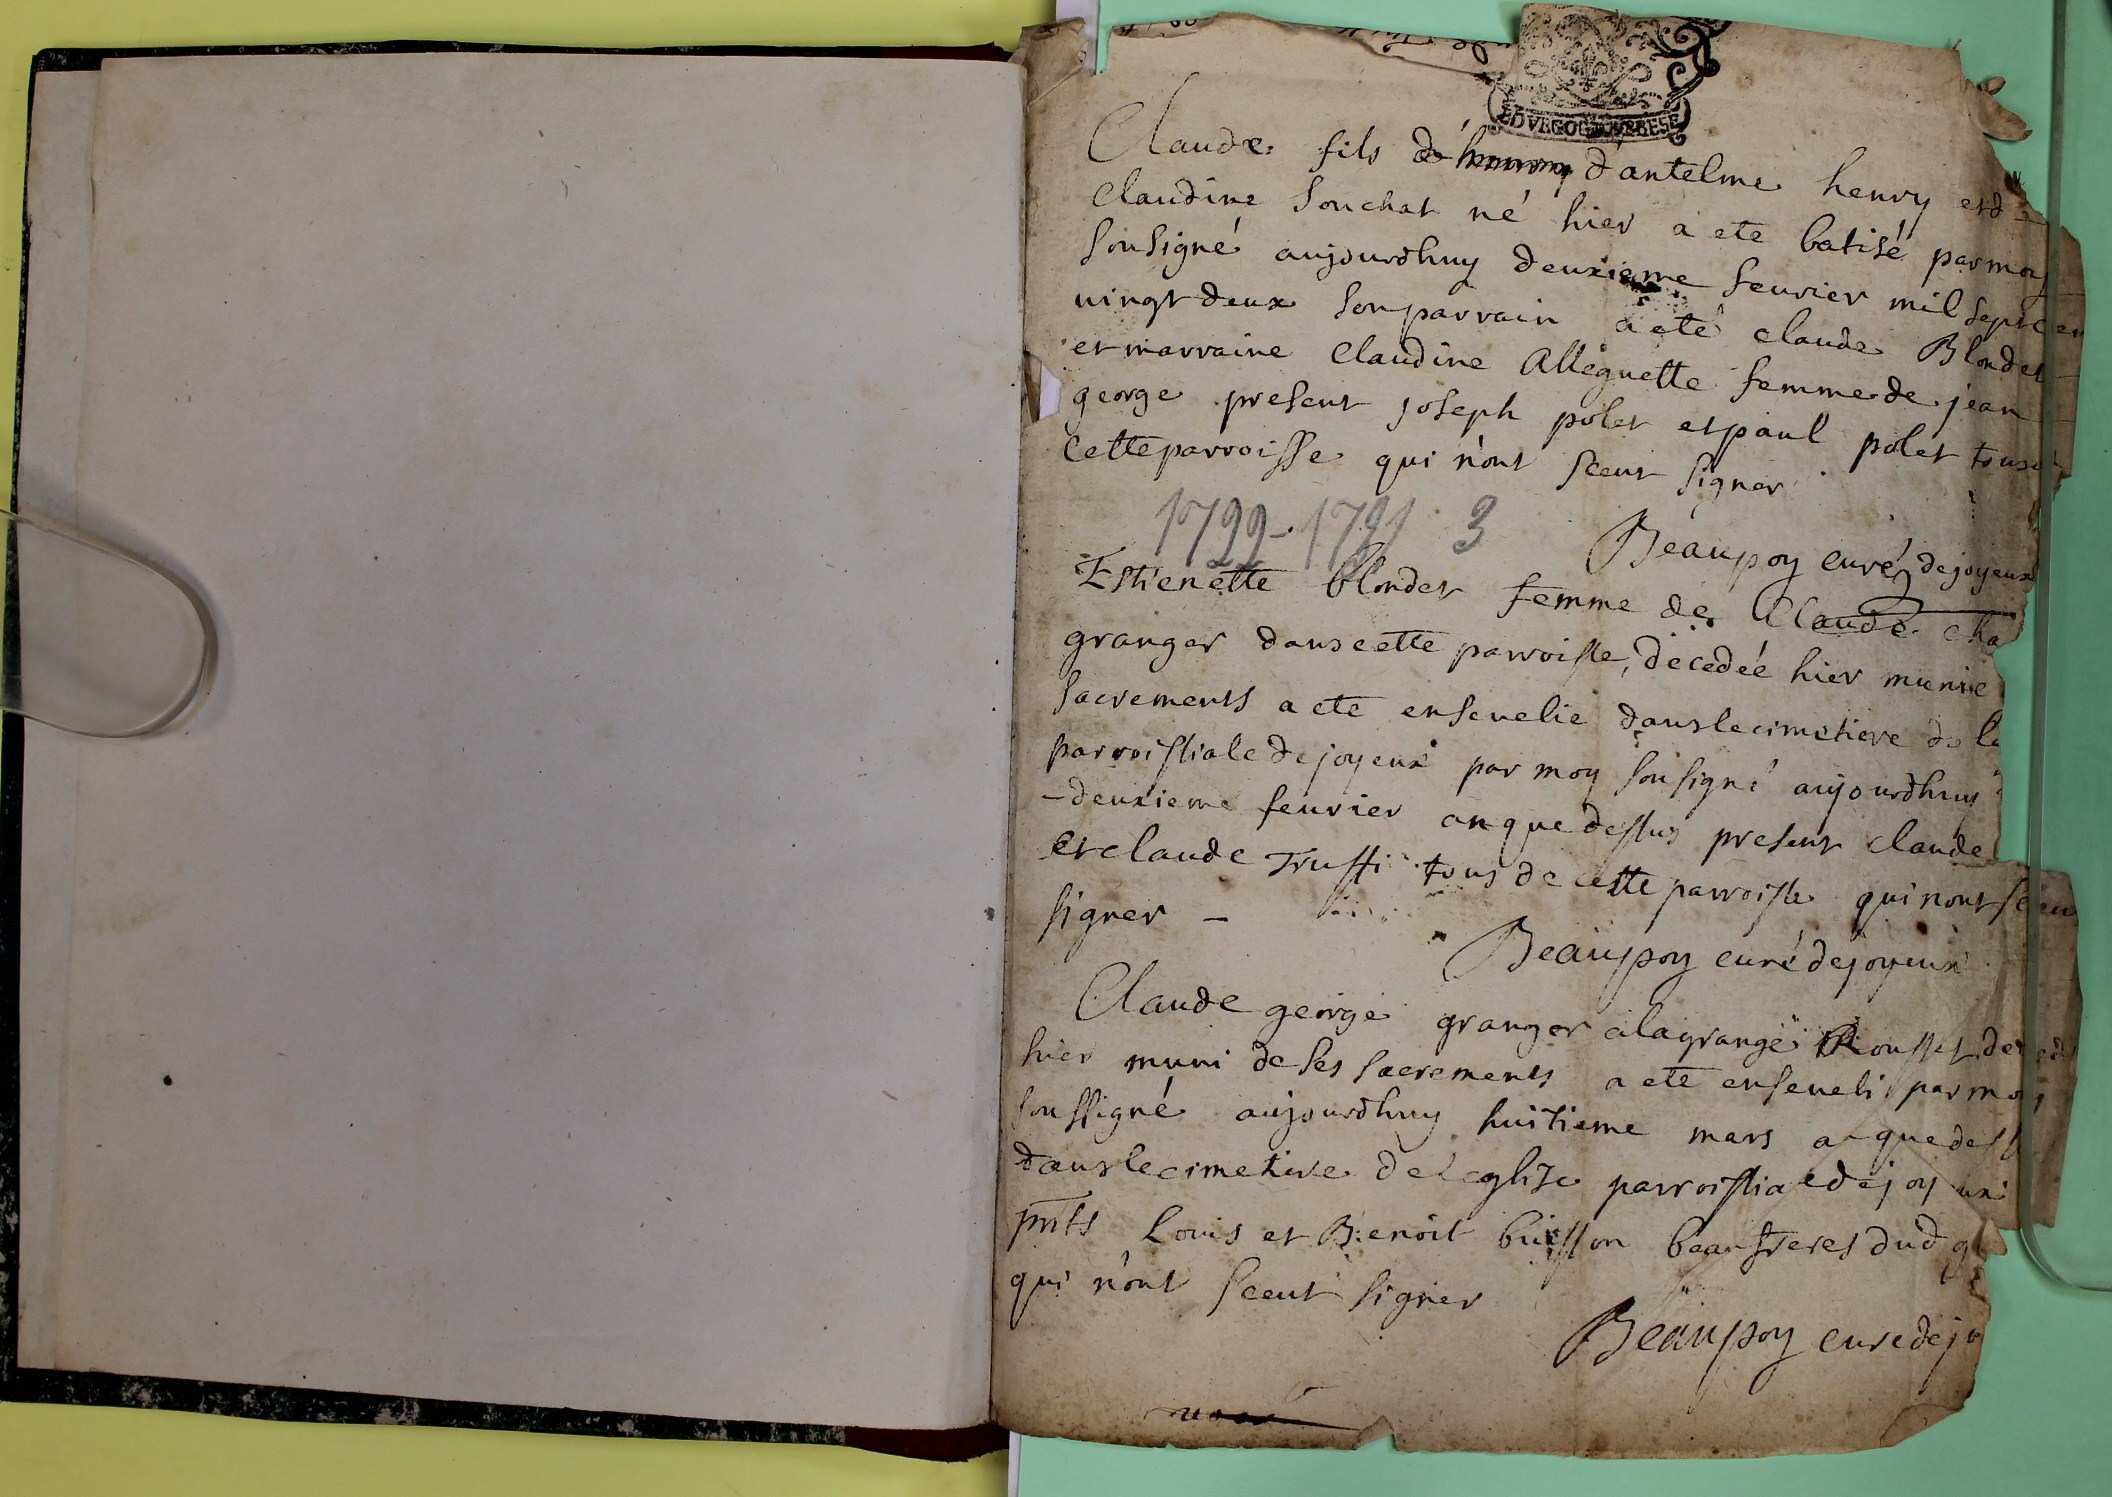 EDVEGOG
Claude fils d'antelme henry et d
Claudine Souchat né hier a ete batisé par moy
Sousigné aujourdhuy deuxieme feurier mil sept cen
uingt deux son parrain a eté claude Blondet
et marraine Claudine Alleguette femme de jean
george present joseph polet et paul polet tous
cette parroisse qui n'ont sceut signer
1722-1721 3
Beaupoy curé de joyeux
Estienette blondet femme de Claude cha
granger dans cette parroisse, decedée hier munie
sacrements a ete enseuelie dans le cimetiere de l
parroissiale de joyeux par moy sousigné aujourdhuy
-deuxieme feurier an que dessus present claude
et claude Truffi tous de cette parroisse qui nont sceu
signer -
Beaupoy curé de joyeux
Claude george granger a la grange Rousset deced
hier muni de ses sacrements a ete enseueli par moy
soussigné aujourdhuy huitieme mars a que dess
dans le cimetiere de l'eglise parroissiale de joyeux
pnts Louis et Benoit buisson beaufreres dud g
qui n'ont sceut signer
Beaupoy curé de jo